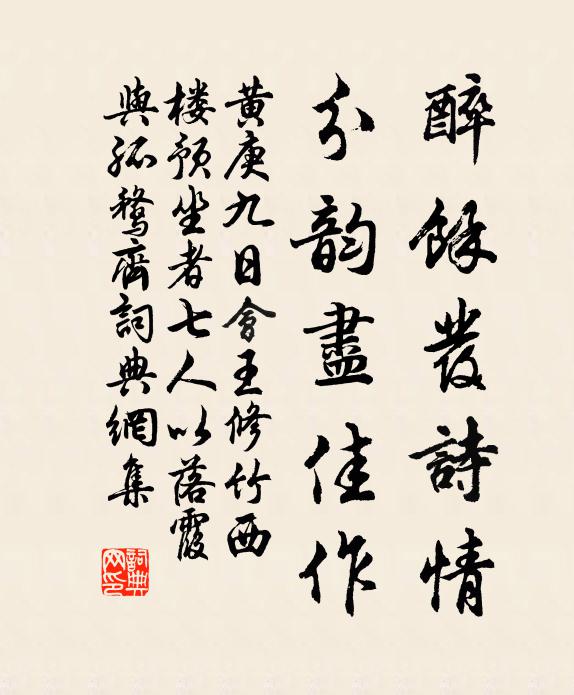 醉餘發詩情
分韵盡佳作
黄庚九日會王修竹西
楼预坐者七人以落霞
與孤鶩齊詞典網集
詞典网印